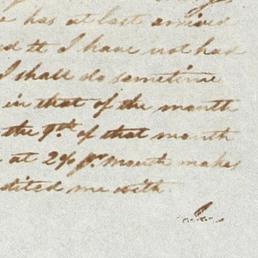 has at last arrived
I have not had
I shall do sometime
in that of the month
the 9th of that month
at 2% pr. month makes
dited me with